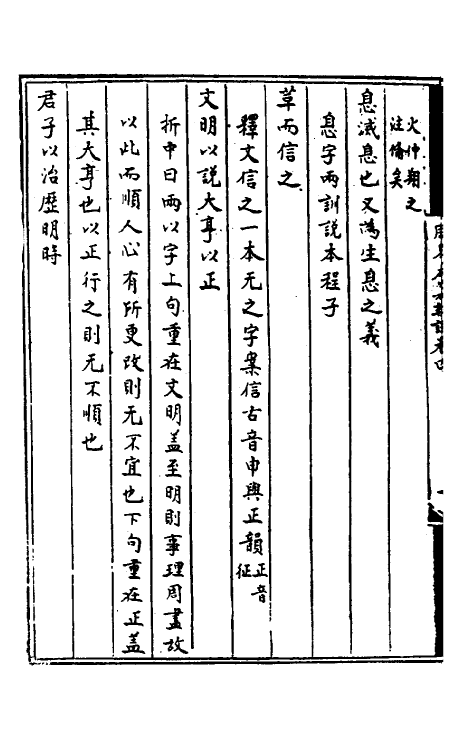 火仲翔之
注備矣
息滅息也又為生息之義
息字兩訓説本程子
革而信之
釋文信之一本无之字案信古音申與正韻正音
征
文明以説大亨以正
折中曰兩以字上句重在文明蓋至明則事理周盡故
以此而順人心有所更改則无不宜也下句重在正蓋
其大亨也以正行之則无不順也
君子以治歷明時